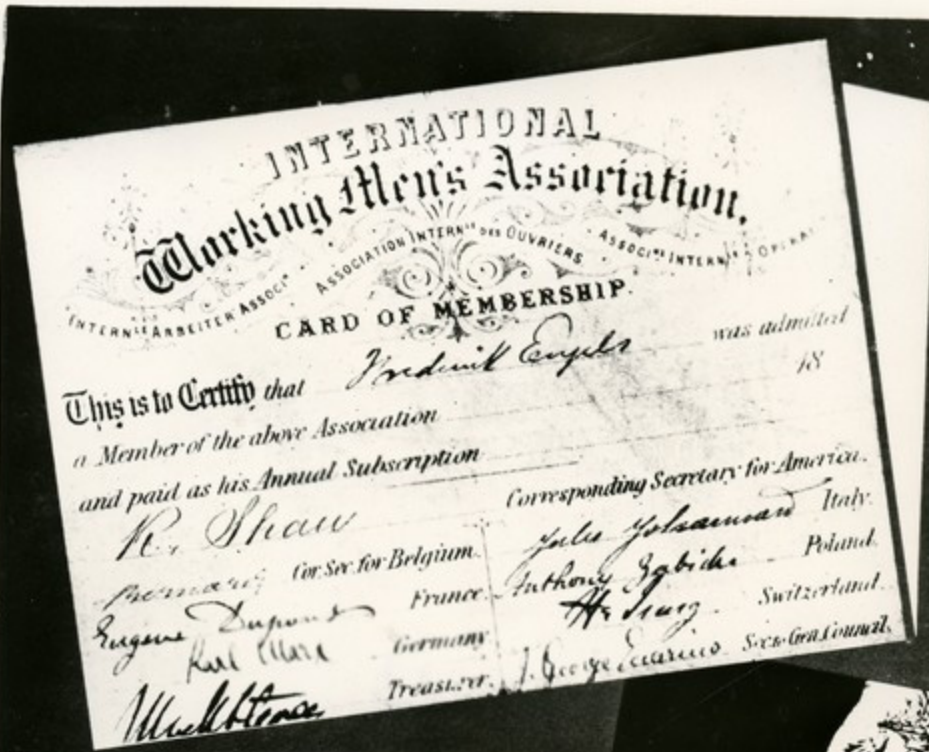 INTERNATIONAL
Working Men's Association.
INTERNLE ARBEITER ASSOCIN ASSOCIATION INTERNLE DES OUVRIERS ASSOCNE INTERNLE
CARD OF MEMBERSHIP.
This is to Certify that Frederick Engels was admitted
a Member of the above Association 18
and paid as his Annual Subscription
R. Shaw Corresponding Secretary for America.
Bernard Cor. Sec. for Belgium. Jules Johannard Italy.
Eugene Dupont France. Anthony Zabicki Poland.
Karl Marx Germany H. Jung Switzerland.
Treasurer. J. George Eccarius Sec. to Gen. Council.